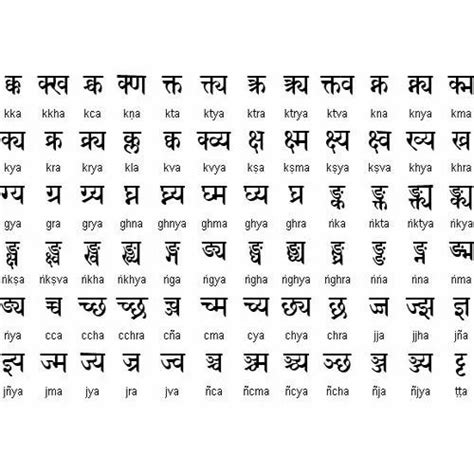 क्क क्ख क्च क्ण क्त क्त्य क्त्र क्त्र्य क्त्व क्न क्न्य क्म
kka kkha kca kṇa kta ktya ktra ktrya ktva kna knya kma
क्य क्र क्र्य क्ल क्व क्व्य क्ष क्ष्म क्ष्य क्ष्व ख्य ख्र
kya kra krya kla kva kvya kṣa kṣma kṣya kṣva khya khra
ग्य ग्र ग्र्य घ्न घ्न्य घ्म घ्य घ्र ङ्क ङ्क्त ङ्क्त्य ङ्क्य
gya gra grya ghna ghnya ghma ghya ghra ṅka ṅkta ṅktya ṅkya
ङ्क्ष ङ्क्ष्व ङ्ख ङ्ख्य ङ्ग ङ्ग्य ङ्घ ङ्घ्य ङ्घ्र ङ्ङ ङ्न ङ्म
ṅkṣa ṅkṣva ṅkha ṅkhya ṅga ṅgya ṅgha ṅghya ṅghra ṅṅa ṅna ṅma
ङ्य च्च च्छ च्छ्र च्ञ च्म च्य छ्य छ्र ज्ज ज्झ ज्ञ
ṅya cca ccha cchra cña cma cya chya chra jja jjha jña
ज्ञ्य ज्म ज्य ज्र ज्व ञ्च ञ्च्म ञ्च्य ञ्छ ञ्ज ञ्ज्य ट्ट
jñya jma jya jra jva ñca ñcma ñcya ñcha ñja ñjya ṭṭa